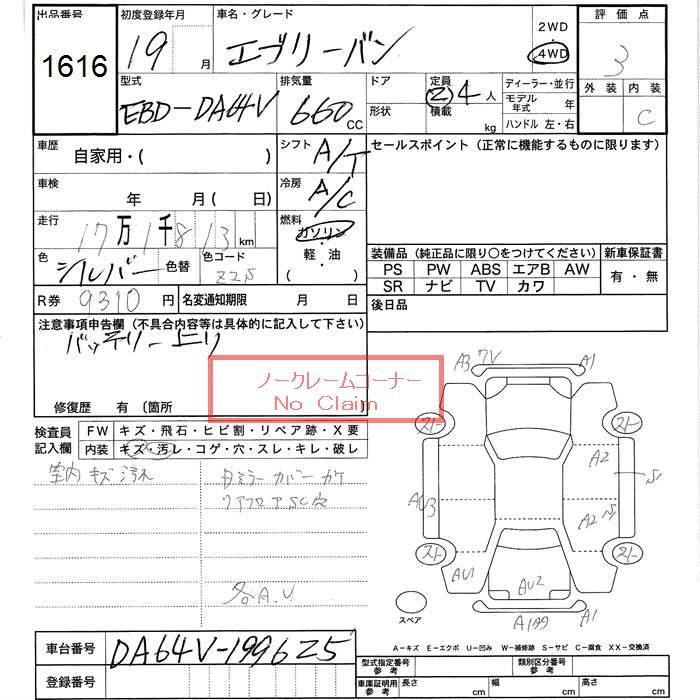 出品番号
1616
初度登録年月
19 月
車名・グレード
エブリーバン
2WD
・
4WD
評価点
3
外装 内装
C
型式
EBD-DA64V
排気量
660 CC
ドア
形状
定員 (2) 4人
積載 kg
ディーラー・並行
モデル年式 年
ハンドル 左・右
車歴
自家用・( )
シフト
A/T
セールスポイント(正常に機能するものに限ります)
車検
年 月( 日)
冷房
A/C
走行
17万1千813km
燃料
ガソリン
・
軽・油
( )
色
シルバー
色替
色コード
Z2S
装備品(純正品に限り○をつけてください)
新車保証書
PS PW ABS エアB AW
SR ナビ TV カワ
有・無
R券 9310円
名変通知期限 月 日
後日品
注意事項申告欄(不具合内容等は具体的に記入して下さい)
バッテリー上り
ノークレームコーナー
No Claim
修復歴 有〔箇所
検査員記入欄
FW キズ・飛石・ヒビ割・リペア跡・X要
内装 キズ・汚レ・コゲ・穴・スレ・キレ・破レ
室内キズ汚れ
ミラーカバーカケ
リアフロアSC穴
各A.U.
A3 7V A1
スト スト
A2
S1
AU3
A2
スト スト
AU1
AU2
A1
スペア
A-キズ E-エクボ U-凹み W-補修跡 S-サビ C-腐食 XX-交換済
車台番号 DA64V-199625
登録番号
型式指定番号 参考
類別区分番号 参考
車庫証明用 参考
長さ cm
幅 cm
高さ cm